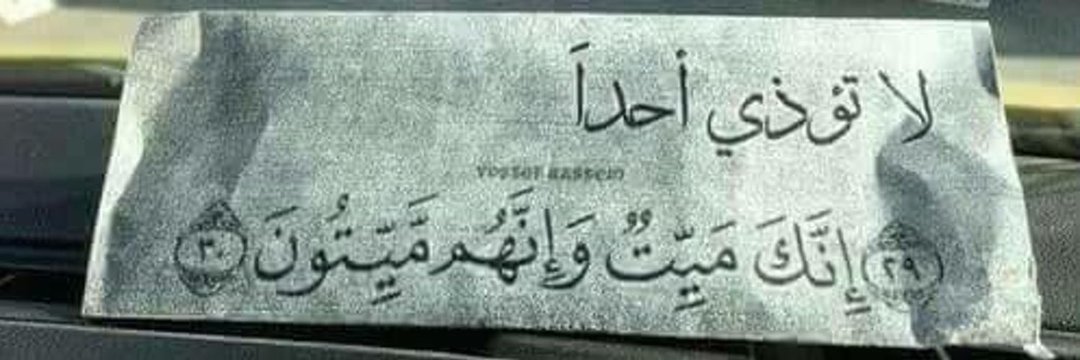 لا تؤذي أحداً
Yossof Hassein
﴿٢٩﴾ إِنَّكَ مَيِّتٌ وَإِنَّهُم مَّيِّتُونَ ﴿٣٠﴾